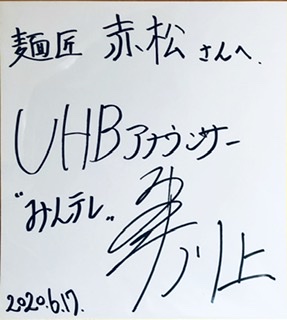 麺匠 赤松 さんへ.
UHBアナウンサー
"みんテレ"
川上
2020.6.17.